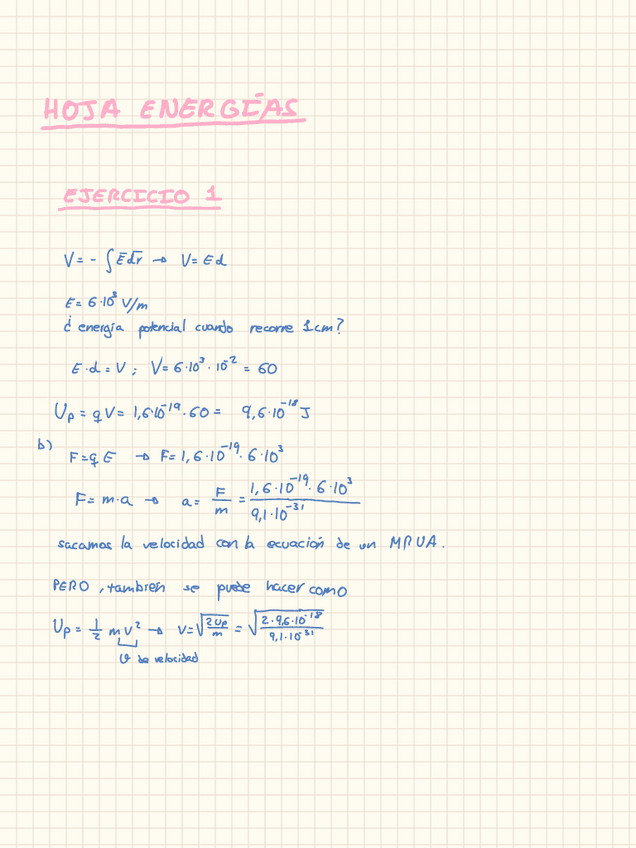 HOJA ENERGÍAS
EJERCICIO 1
V = - ∫ Edr → V = Ed
E = 6·10³ V/m
¿ energía potencial cuando recorre 1cm?
E·d = V ; V = 6·10³ · 10⁻² = 60
Up = qV = 1,6·10⁻¹⁹ · 60 = 9,6·10⁻¹⁸ J
b) F = q E → F = 1,6·10⁻¹⁹ · 6·10³
F = m·a → a = F/m = 1,6·10⁻¹⁹ · 6·10³ / 9,1·10⁻³¹
sacamos la velocidad con la ecuación de un MRUA.
PERO, también se puede hacer como
Up = 1/2 m v² → v = √(2Up/m) = √(2·9,6·10⁻¹⁸ / 9,1·10⁻³¹)
v de velocidad